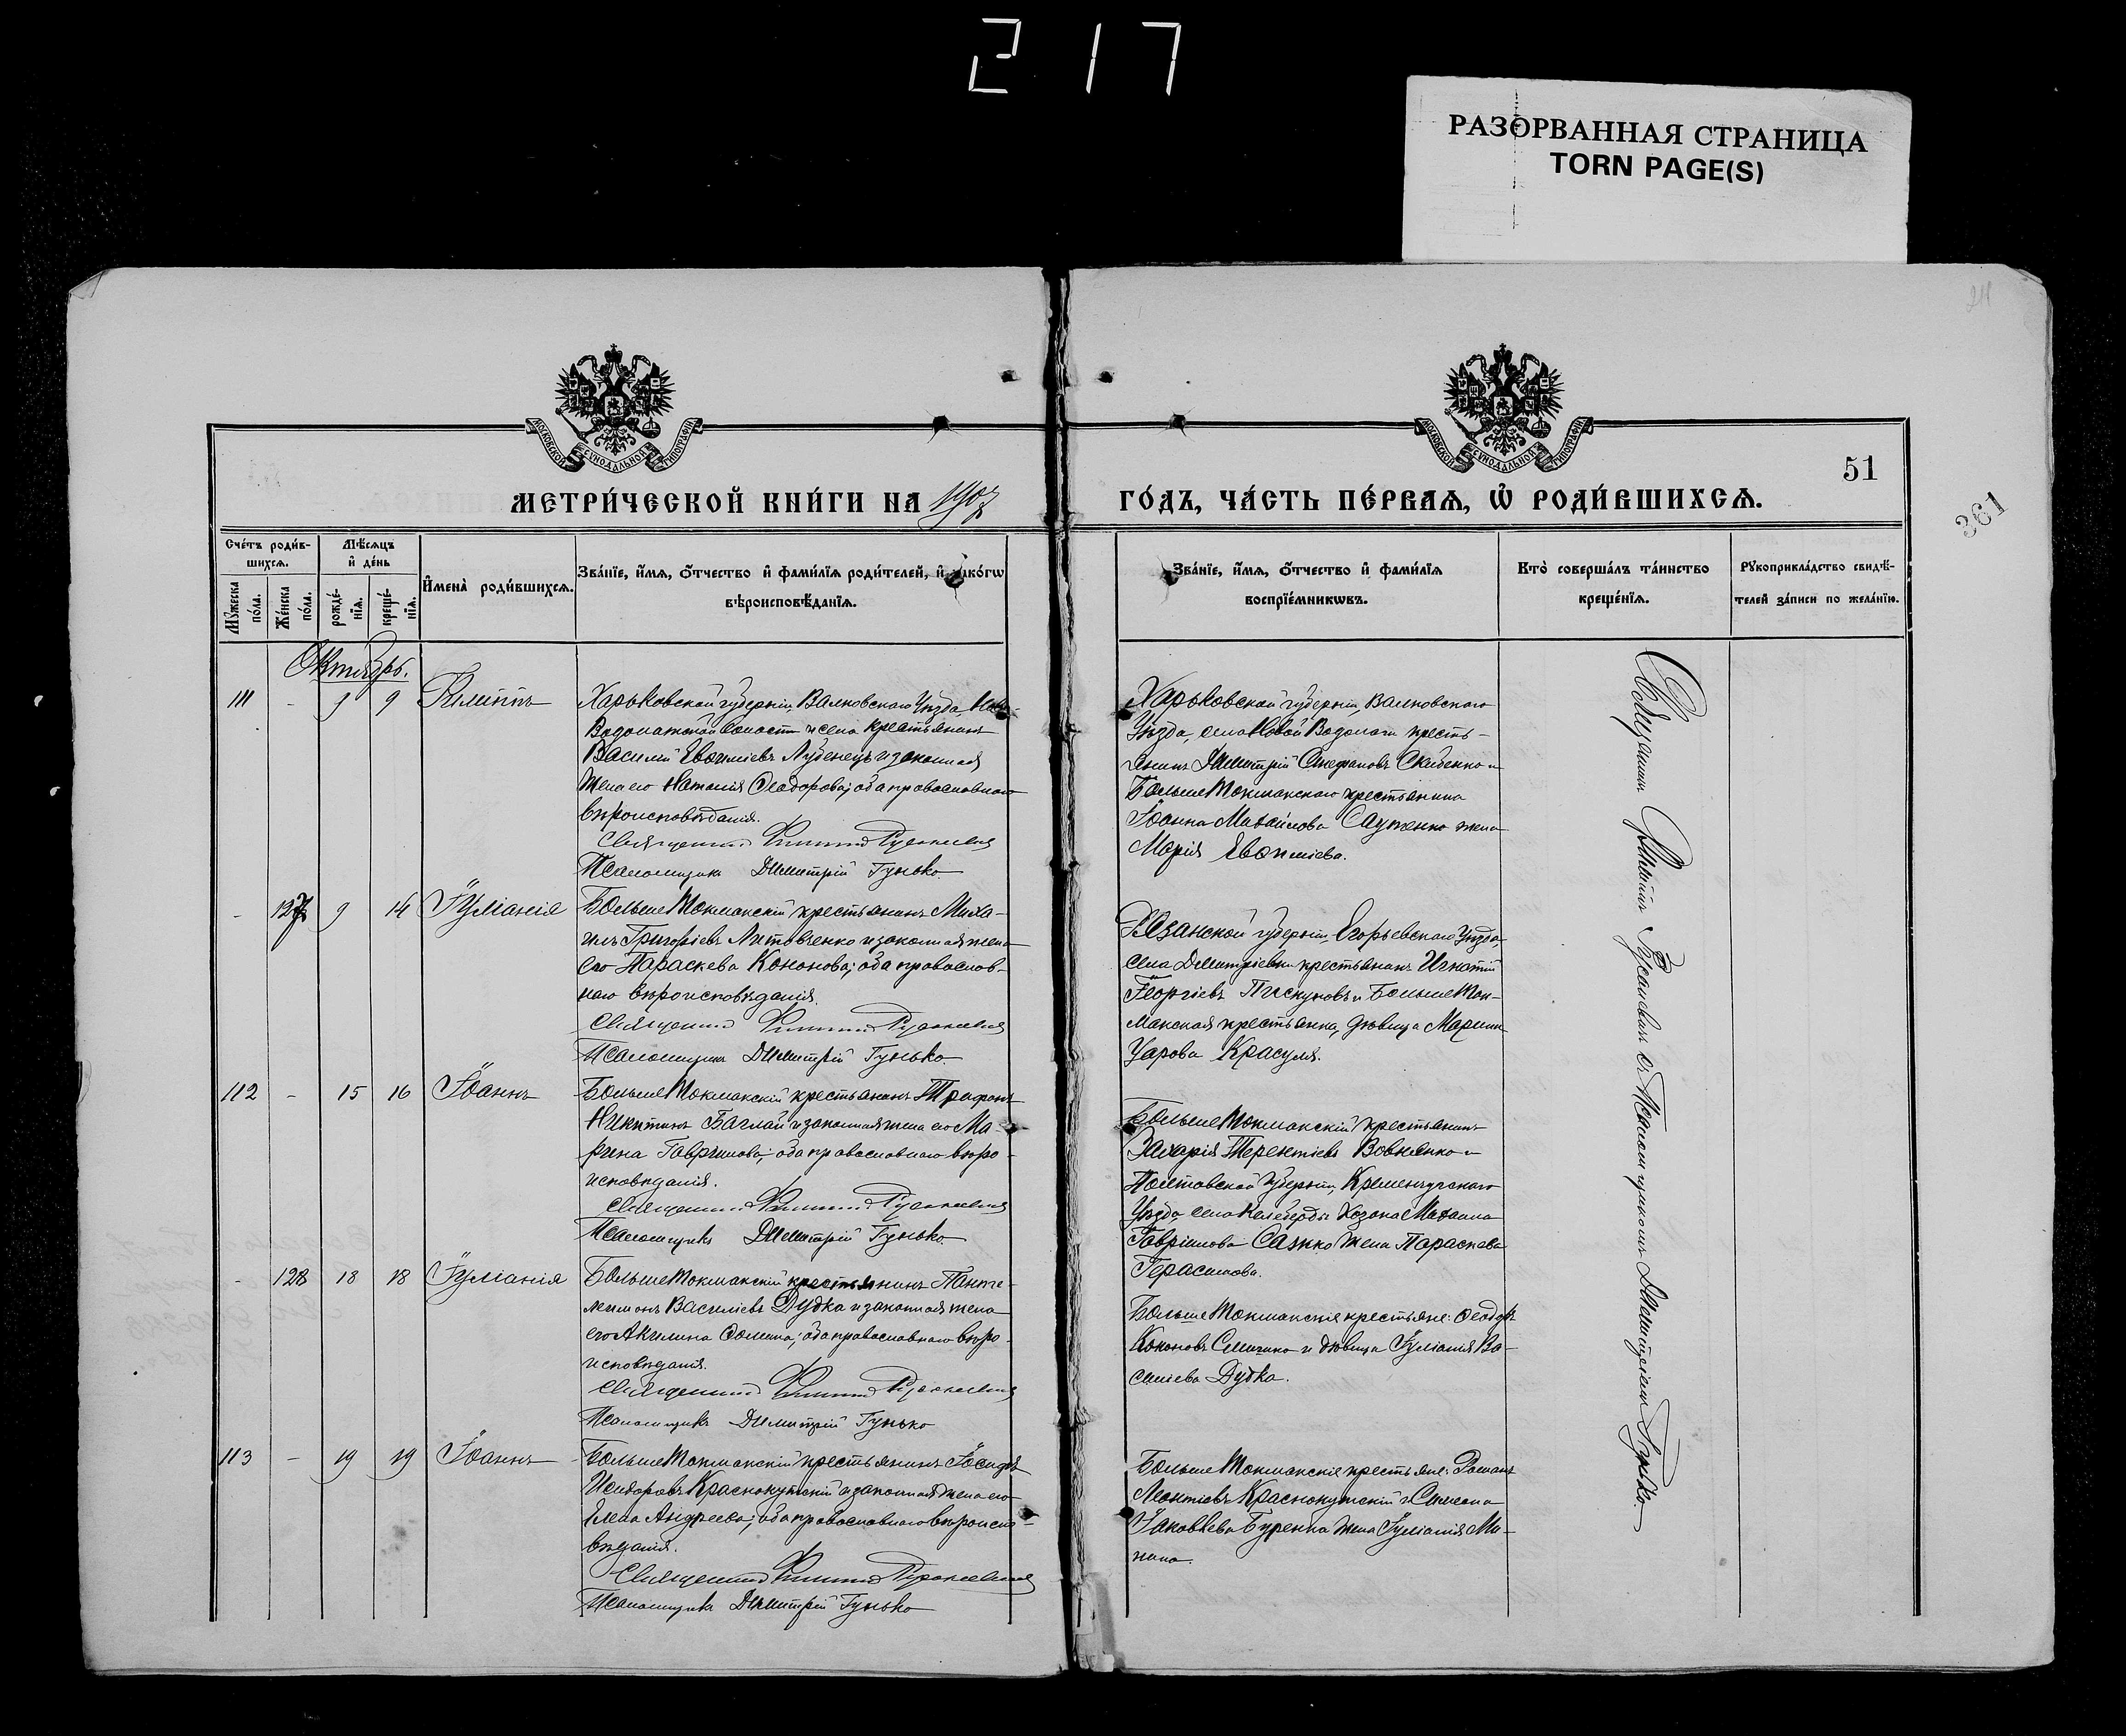 217
РАЗОРВАННАЯ СТРАНИЦА
TORN PAGE(S)
МОСКОВСКОЙ СѴНОДАЛЬНОЙ ТИПОГРАФІИ
МОСКОВСКОЙ СѴНОДАЛЬНОЙ ТИПОГРАФІИ
51
361
МЕТРИ́ЧЕСКОЙ КНИ́ГИ НА 1907
ГО́ДЪ, ЧА́СТЬ ПЕ́РВАѦ, Ѡ҆ РОДИ́ВШИХСѦ.
Сче́тъ роди́в-
шихсѧ.
Мꙋ́жеска по́ла.
Же́нска по́ла.
Мѣ́сѧцъ
и҆ де́нь
рожде́-
нїѧ.
креще́-
нїѧ.
И҆мена̀ роди́вшихсѧ.
Зва́нїе, и҆́мѧ, ѻ҆́тчество и҆ фами́лїѧ роди́телей, и҆ како́гѡ
вѣроисповѣ́данїѧ.
Зва́нїе, и҆́мѧ, ѻ҆́тчество и҆ фами́лїѧ
воспрїе́мникѡвъ.
Кто̀ соверша́лъ та́инство
креще́нїѧ.
Рꙋкоприкла́дство свидѣ́-
телей за́писи по жела́нїю.
Октябрь.
111 - 9 9 Филиппъ
Харьковской губерніи, Валковскаго Уѣзда, Ново-
Водолажской волости и села крестьянинъ
Василій Евѳиміевъ Лубенецъ и законная
жена его Наталія Ѳеодорова; оба православнаго
вѣроисповѣданія.
Священникъ Филиппъ
Псаломщикъ Димитрій Гунько
Харьковской губерніи, Валковскаго
Уѣзда, села Новой Водолаги кресть-
янинъ Димитрій Стефановъ Скибенко и
БольшеТокмакскаго крестьянина
Іоанна Михайлова жена
Марія Евѳиміева.
- 127 9 14 Іуліанія
БольшеТокмакскій крестьянинъ Миха-
илъ Григоріевъ Литовченко и законная жена
его Параскева Кононова; оба православ-
наго вѣроисповѣданія.
Священникъ Филиппъ
Псаломщикъ Димитрій Гунько
Рязанской губерніи, Егорьевскаго Уѣзда,
села Димитріевки крестьянинъ Игнатій
Георгіевъ Пискуновъ и БольшеТок-
макская крестьянка, дѣвица Марина
Уарова Красуля.
112 - 15 16 Іоаннъ
БольшеТокмакскій крестьянинъ Трифонъ
Никитинъ Баглай и законная жена его Ма-
рина Гавріилова; оба православнаго вѣро-
исповѣданія.
Священникъ Филиппъ
Псаломщикъ Димитрій Гунько
БольшеТокмакскій крестьянинъ
Захарія Терентіевъ Вовнянко и
Полтавской губерніи, Кременчугскаго
Уѣзда, села Келеберды Козака Михаила
Гавріилова жена Параскева
Герасимова.
- 128 18 18 Іуліанія
БольшеТокмакскій крестьянинъ Панте-
леимонъ Василіевъ Дудка и законная жена
его Акилина Ѳомина; оба православнаго вѣро-
исповѣданія.
Священникъ Филиппъ
Псаломщикъ Димитрій Гунько
БольшеТокмакскіе крестьяне: Ѳеодоръ
Кононовъ и дѣвица Іуліанія Ва-
силіева Дудка.
113 - 19 19 Іоаннъ
БольшеТокмакскій крестьянинъ Исидоръ
Исидоровъ Краснокутскій и законная жена его
Елена Андреева; оба православнаго вѣроиспо-
вѣданія.
Священникъ Филиппъ
Псаломщикъ Димитрій Гунько
БольшеТокмакскіе крестьяне: Романъ
Леонтіевъ Краснокутскій и Симеона
Іаковлева Буренка жена Іуліанія Ма-
Священникъ Филиппъ съ Псаломщикомъ Димитріемъ Гунько.